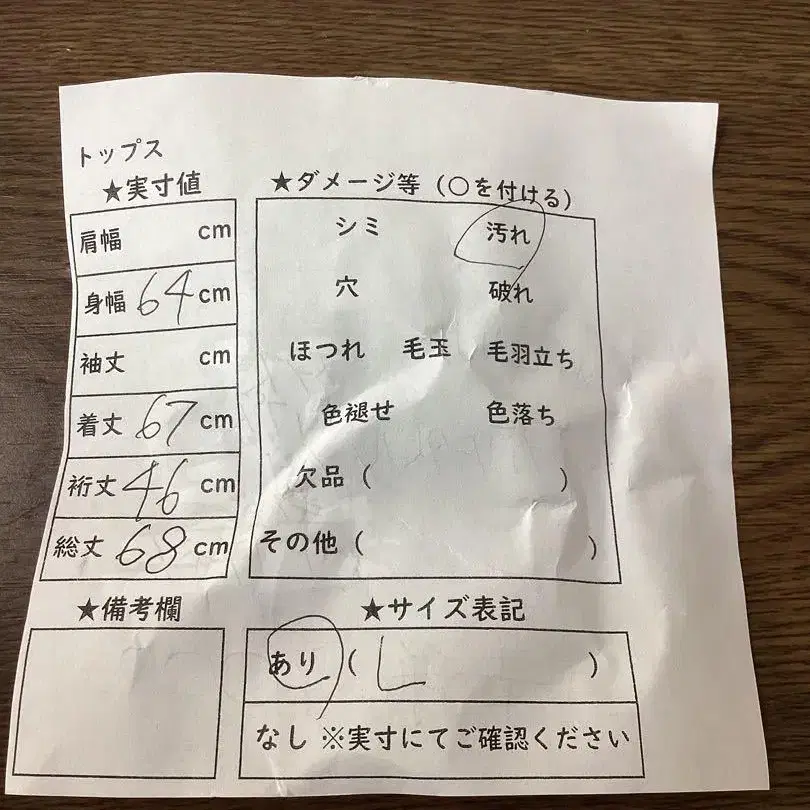 トップス
★実寸値
肩幅 cm
身幅 64 cm
袖丈 cm
着丈 67 cm
裄丈 46 cm
総丈 68 cm
★ダメージ等（○を付ける）
シミ 汚れ
穴 破れ
ほつれ 毛玉 毛羽立ち
色褪せ 色落ち
欠品（ ）
その他（ ）
★備考欄
★サイズ表記
あり（ L ）
なし ※実寸にてご確認ください